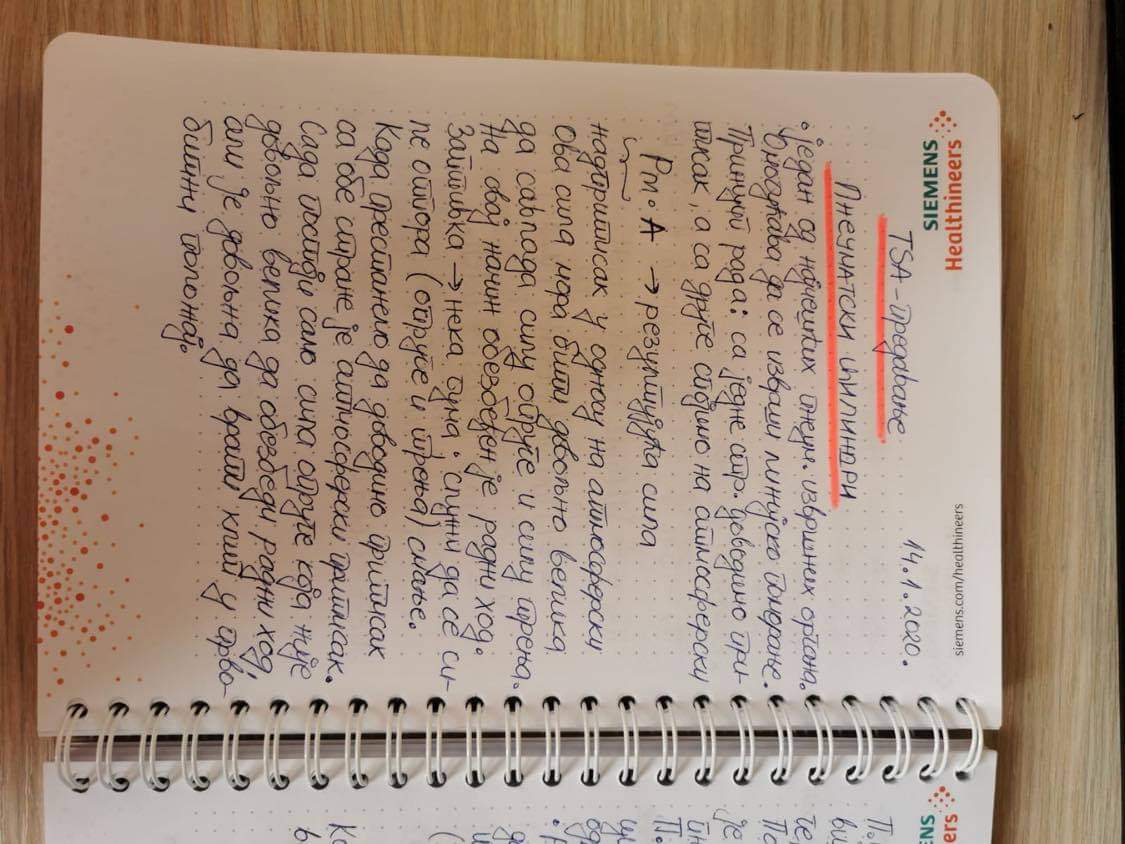 SIEMENS
Healthineers
siemens.com/healthineers
TSA-предавање 14.1.2020.
Пнеуматски цилиндри
• један од најчешћих пнеум. извршних органа.
Омогућава да се изврши линијско померање.
Принцип рада: са једне стр. доводимо при-
тисак, а са друге стране имамо атмосферски
Pm·A → резултујућа сила
надпритисак у односу на атмосферски
Ова сила мора бити довољно велика
да савлада силу опруге и силу трења.
На овај начин обезбеђен је радни ход.
Заптивка → нека гума. служи да се си-
ле отпора (опруге и трења) смање.
Када престанемо да доводимо притисак
са обе стране је атмосферски притисак.
Сада постоји само сила опруге која није
довољно велика да обезбеди радни ход,
али је довољна да врати клип у прво-
битни положај.
ENS
ers